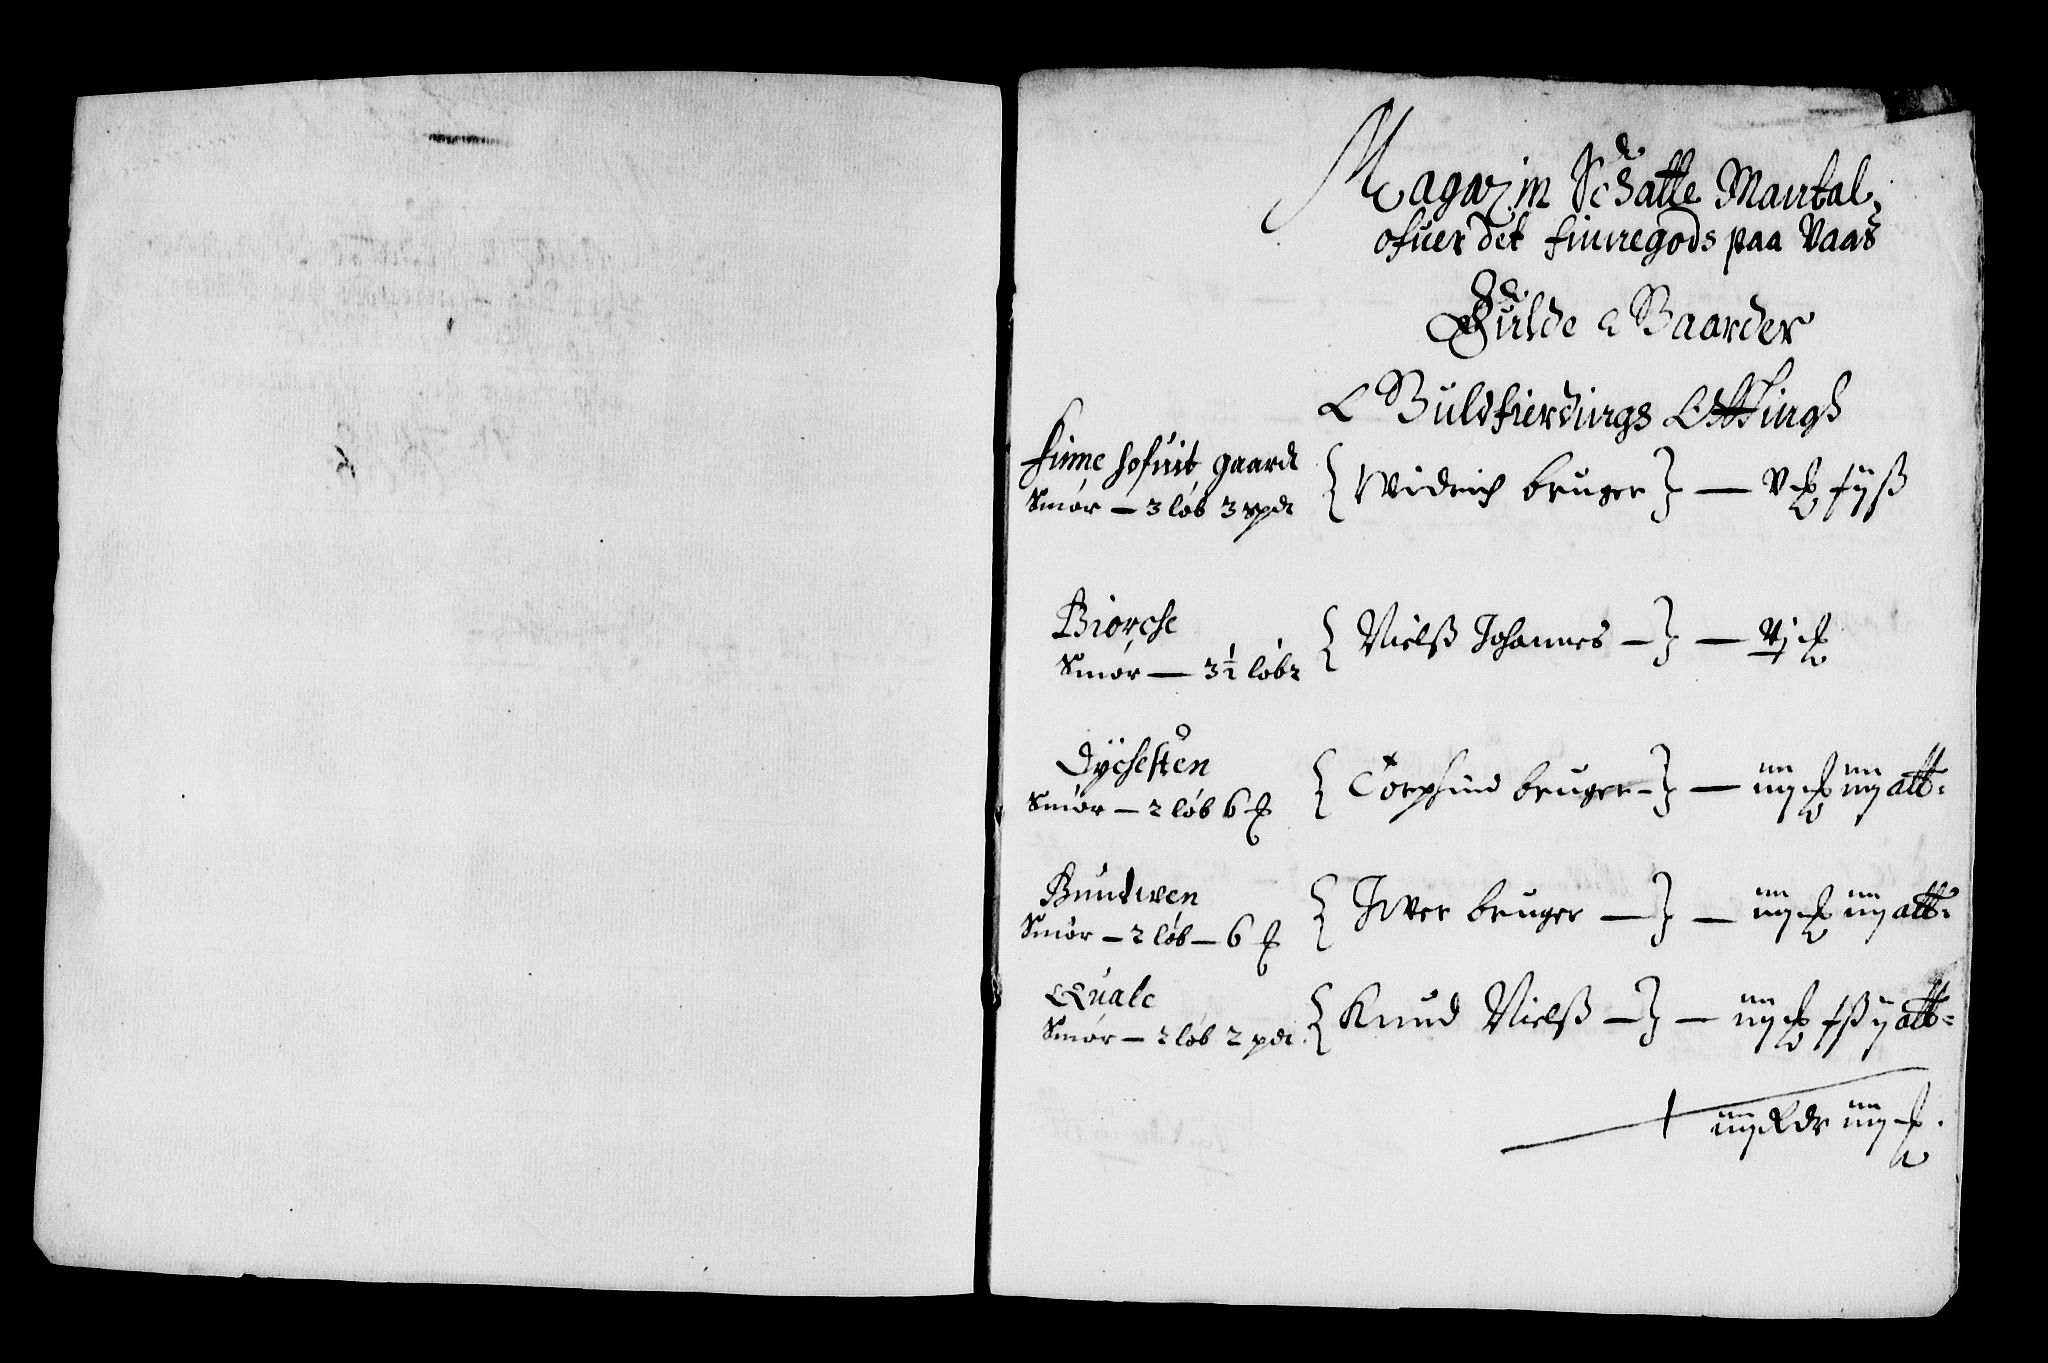 Magazin Schatte Mantal
ofuer det finnegods paa Vaas
Fulde Gaarder
Guldfierdings Otting
finne hofuit gaard
Smör — 3 löb 3 spd
{ Widrich bruger } — V ijß
Biörche
Smör — 3½ löb
{ Nielß Johannes — } — Vj
Dycheften
Smör — 2 löb 6
{ Torphind bruger – } — iiij iiij alb:
Bundwen
Smör – 2 löb – 6
{ Jver bruger — } — iiij iiij alb:
Quale
Smör — 2 löb 2 pd
{ Knud Nielß — } — iiij jß ij alb:
iiij Rdr iiij